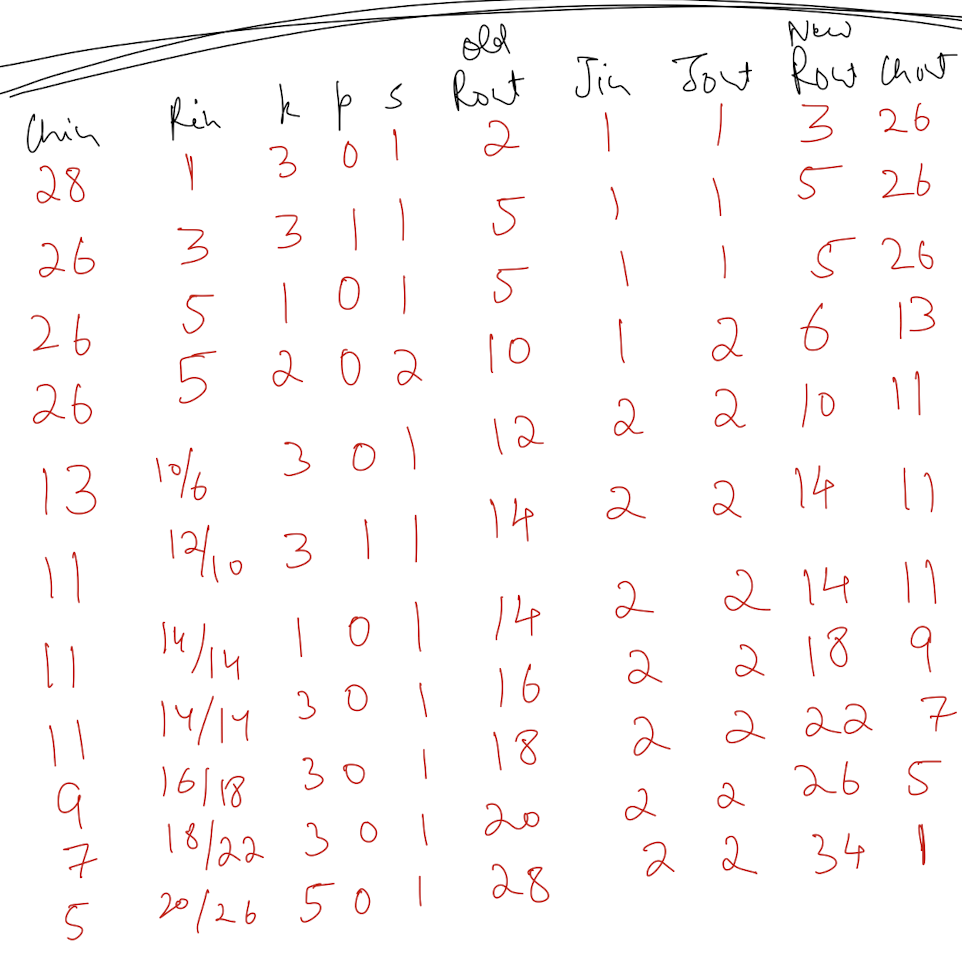 Chin Rin k p s Old Rout Jin Jout New Rout Chout
28 1 3 0 1 2 1 1 3 26
26 3 3 1 1 5 1 1 5 26
26 5 1 0 1 5 1 1 5 26
26 5 2 0 2 10 1 2 6 13
13 10/6 3 0 1 12 2 2 10 11
11 12/10 3 1 1 14 2 2 14 11
11 14/14 1 0 1 14 2 2 14 11
11 14/14 3 0 1 16 2 2 18 9
9 16/18 3 0 1 18 2 2 22 7
7 18/22 3 0 1 20 2 2 26 5
5 20/26 5 0 1 28 2 2 34 1